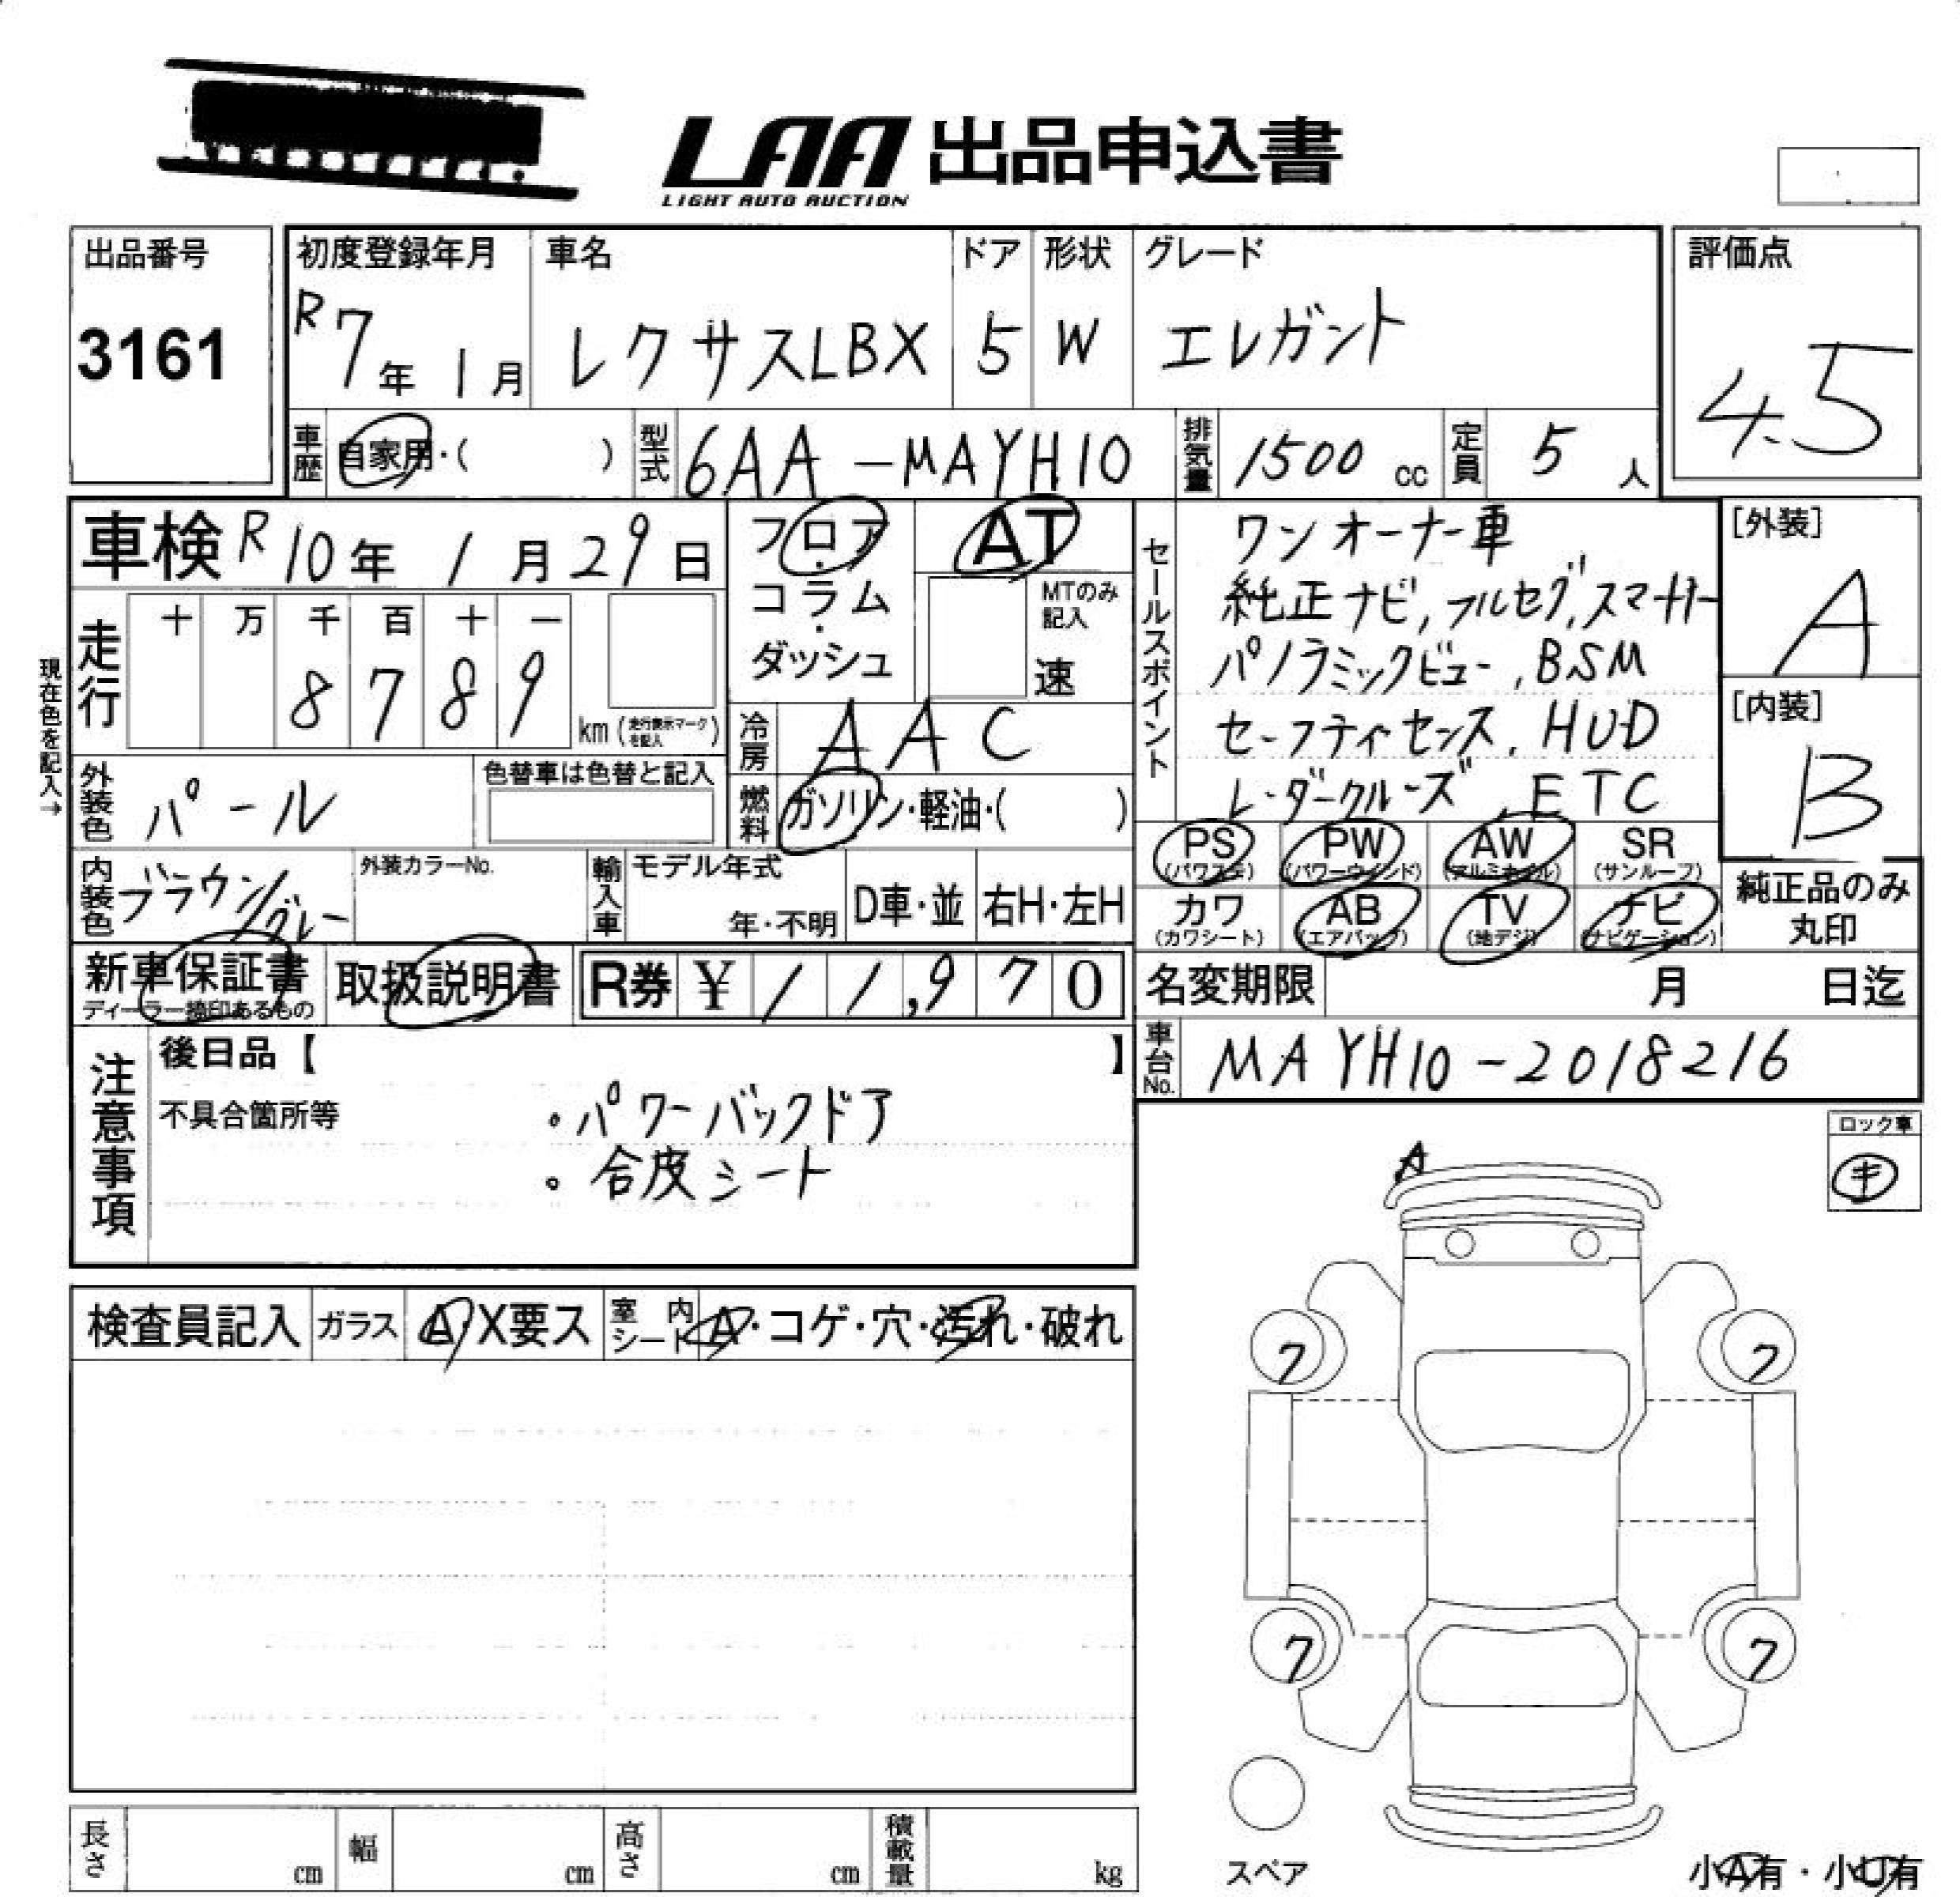 LAA 出品申込書
LIGHT AUTO AUCTION
出品番号
3161
初度登録年月
R7年 1月
車名
レクサスLBX
ドア
5
形状
W
グレード
エレガント
評価点
4.5
車歴 自家用・( )
型式 6AA-MAYH10
排気量 1500 cc
定員 5 人
車検 R10年 1月29日
走行
十 万 千 百 十 一
8 7 8 9
km (走行表示マークを記入)
現在色を記入→
外装色 パール
色替車は色替と記入
内装色 ブラウン/グレー
外装カラーNo.
フロア・コラム・ダッシュ
AT
MTのみ記入
速
冷房 AAC
燃料 ガソリン・軽油・( )
輸入車 モデル年式
年・不明
D車・並 右H・左H
セールスポイント
ワンオーナー車
純正ナビ,フルセグ,スマートキー
パノラミックビュー,BSM
セーフティセンス,HUD
レーダークルーズ,ETC
[外装]
A
[内装]
B
PS (パワステ) PW (パワーウインド) AW (アルミホイル) SR (サンルーフ)
カワ (カワシート) AB (エアバッグ) TV (地デジ) ナビ (ナビゲーション)
純正品のみ丸印
新車保証書
ディーラー捺印あるもの
取扱説明書
R券 ¥ 11,970
名変期限 月 日迄
車台No. MAYH10-2018216
注意事項
後日品【 】
不具合箇所等
・パワーバックドア
・合皮シート
ロック車
キ
A
検査員記入 ガラス A・X要ス 室内シート A・コゲ・穴・汚れ・破れ
7 7
7 7
スペア
長さ cm 幅 cm 高さ cm 積載量 kg
小A有・小U有